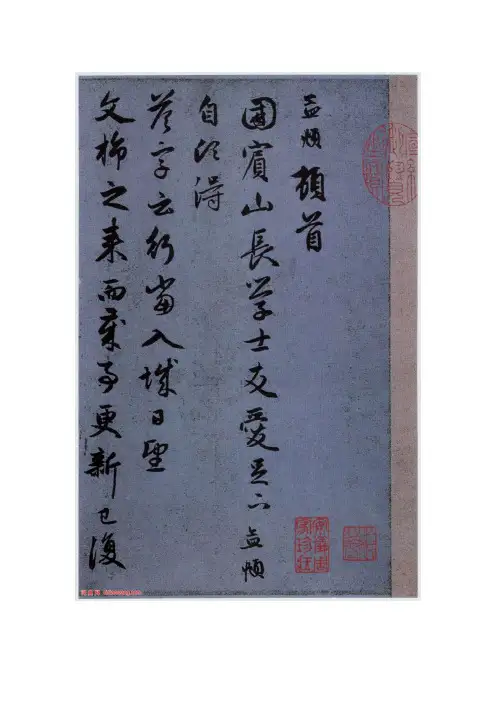 孟頫頓首
國賓山長學士友愛足下孟頫
自頃得
答字云行當入城日望
文旆之來而歲事更新已復